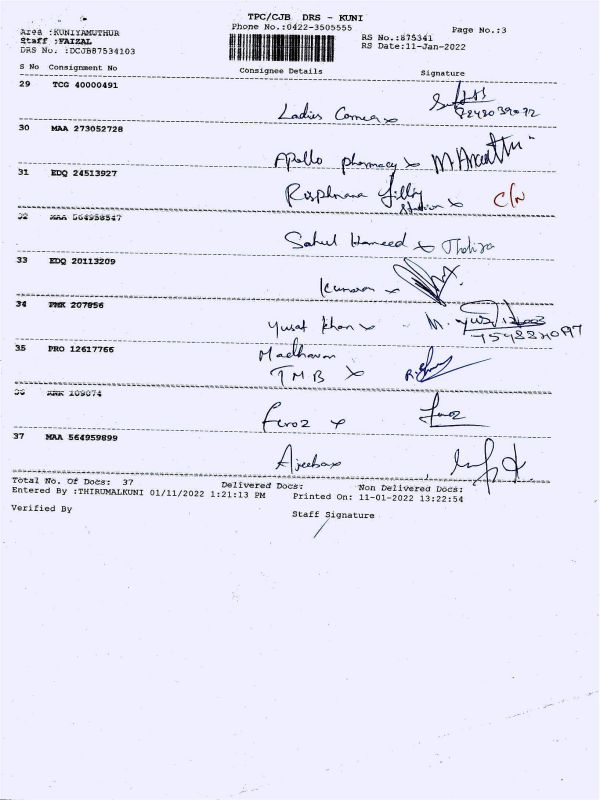 TPC/CJB DRS - KUNI
Phone No.:0422-3505555
Page No.:3
Area :KUNIYAMUTHUR
Staff :FAIZAL
RS No.:875341
DRS No. :DCJB87534103
RS Date:11-Jan-2022
S No Consignment No Consignee Details Signature
29 TCG 40000491
Ladies Corner
30 MAA 273052728
Apollo pharmacy M.Ananthi
31 EDQ 24513927
Filling
Station C/N
32 MAA 564958547
Sahul Hameed
33 EDQ 20113209
Kumaran
34 PMK 207856
Yusaf khan M.
35 PRO 12617766
Madhavan
TMB
36 109074
Feroz Feroz
37 MAA 564959899
Ajeeba
Total No. Of Docs: 37 Delivered Docs: Non Delivered Docs:
Entered By :THIRUMALKUNI 01/11/2022 1:21:13 PM Printed On: 11-01-2022 13:22:54
Verified By Staff Signature